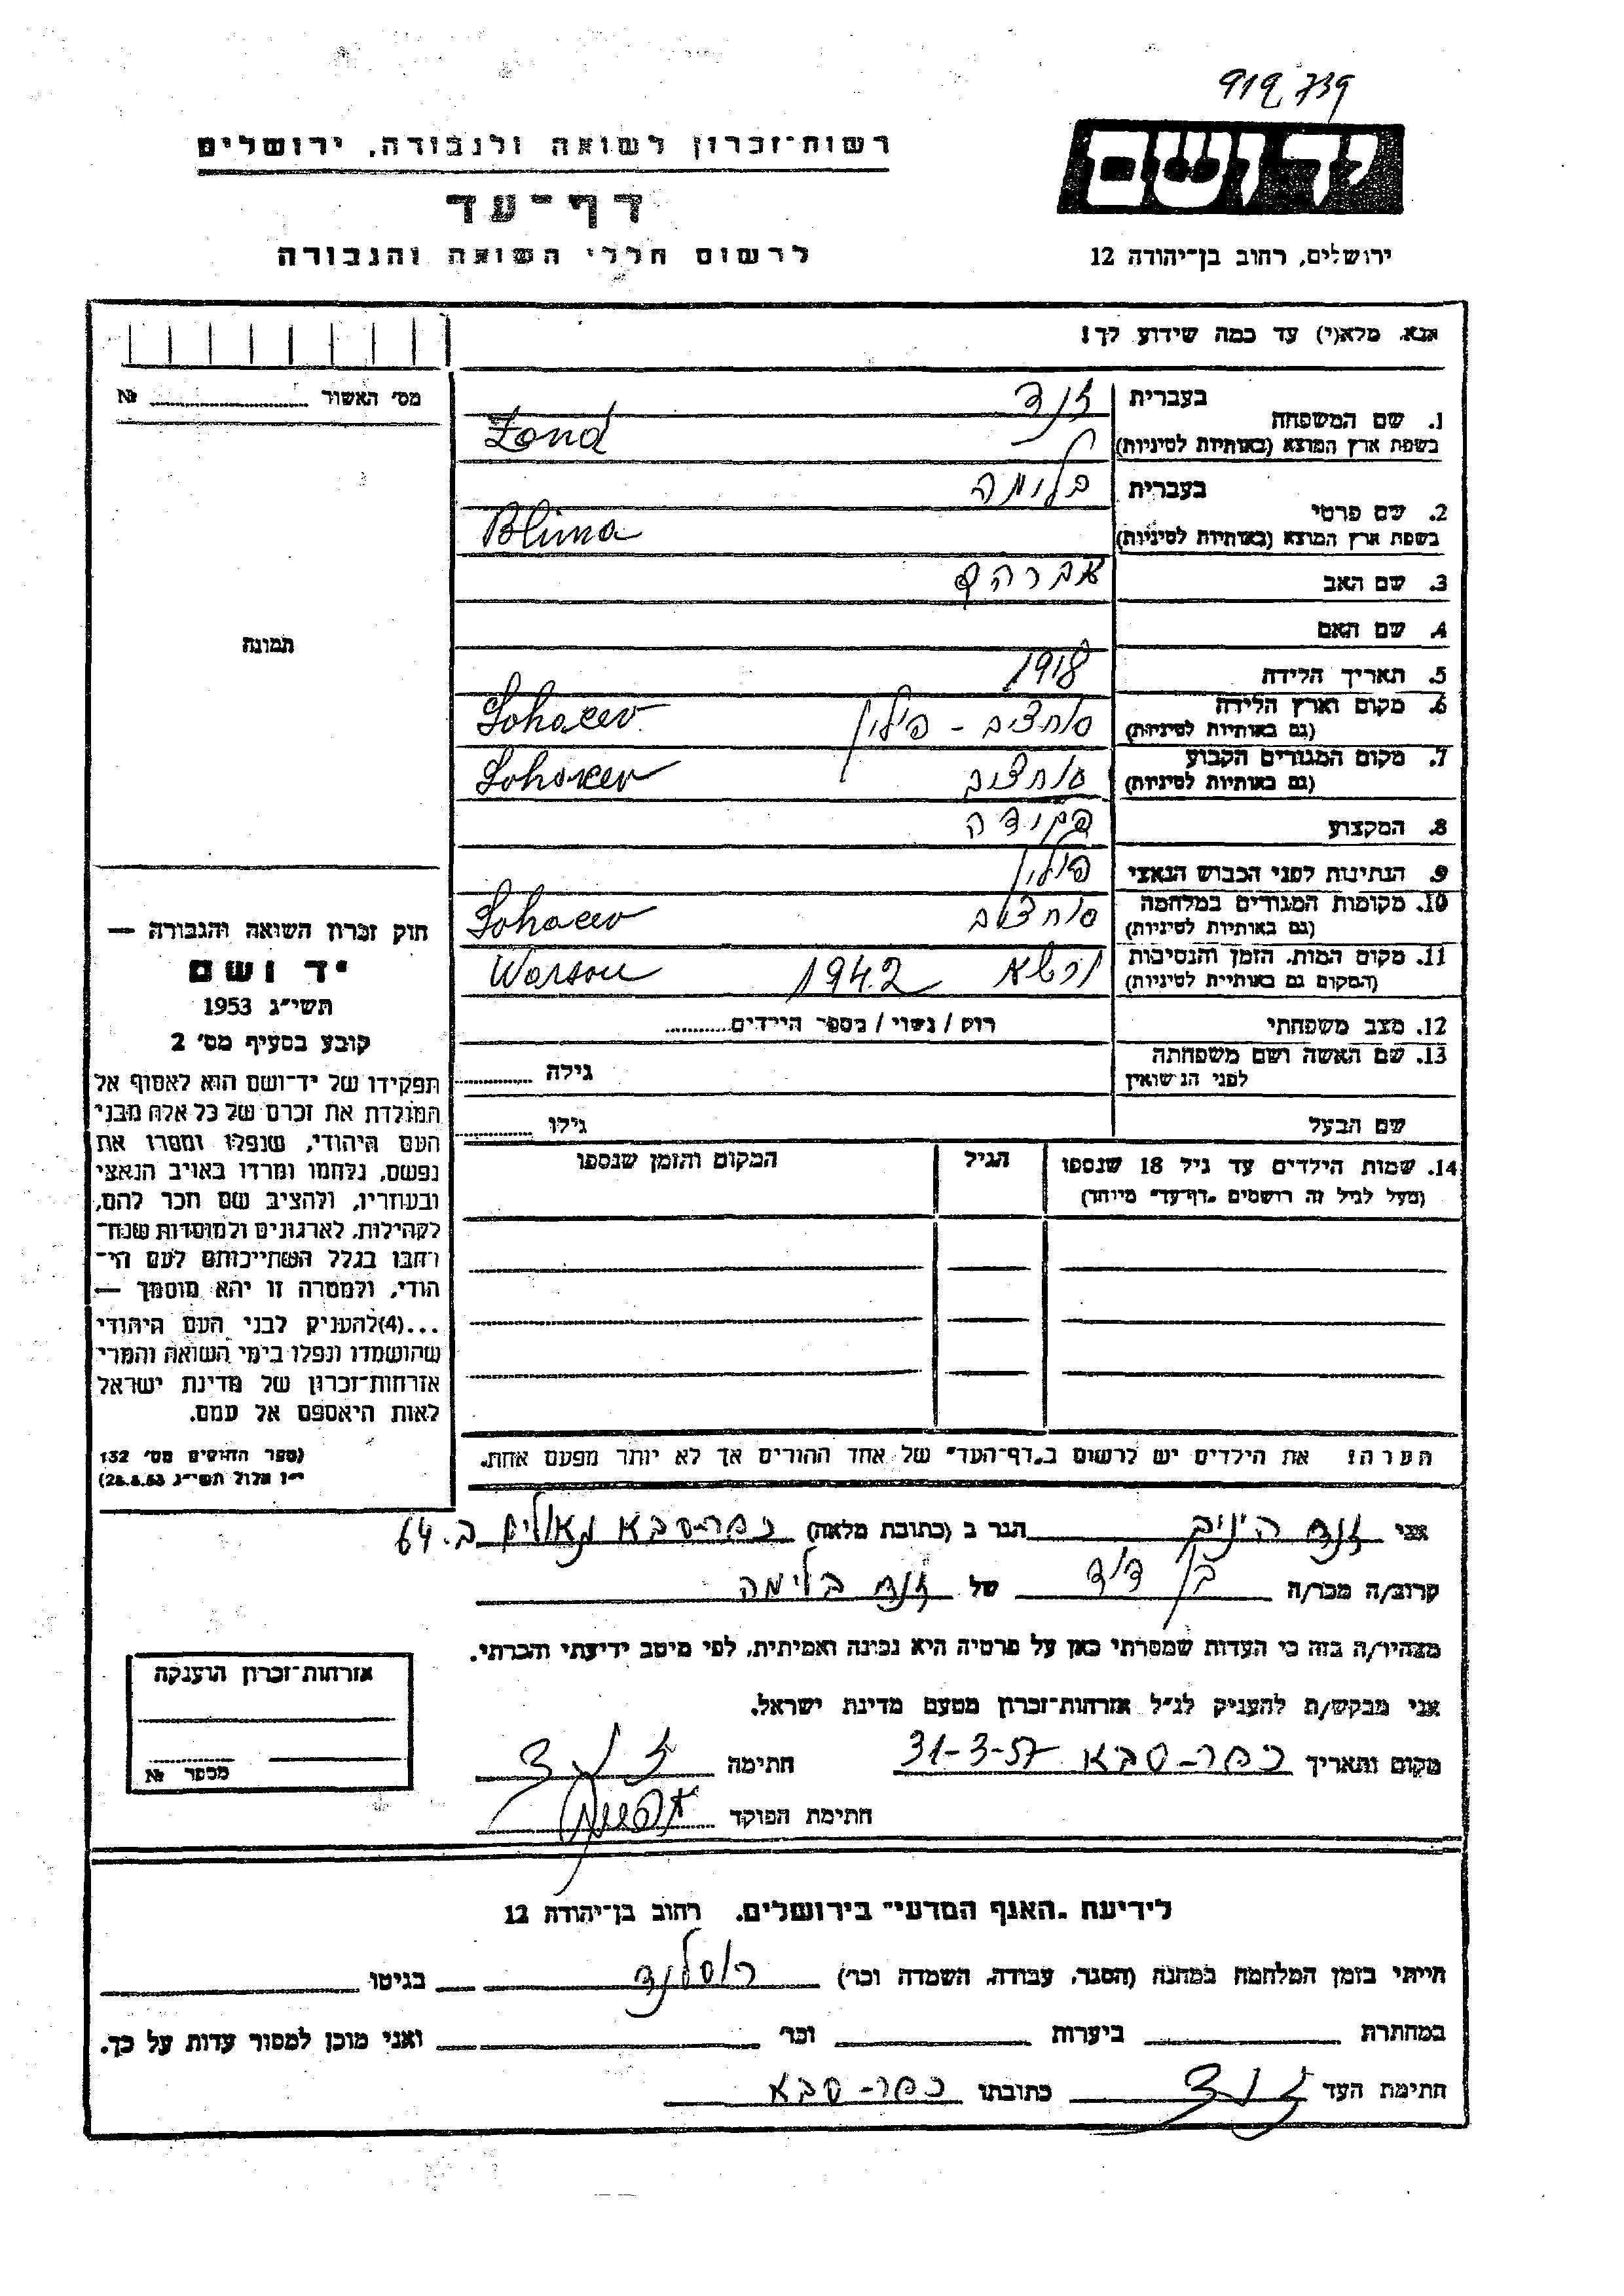 919 739
יד ושם
רשות־זכרון לשואה ולגבורה, ירושלים
דף־עד
לרשום חללי השואה והגבורה
ירושלים, רחוב בן־יהודה 12
אנא, מלא(י) עד כמה שידוע לך!
מס' האשור № ........
תמונה
בעברית זנד
1. שם המשפחה
בשפת ארץ המוצא (באותיות לטיניות) Zond
בעברית בלימה
2. שם פרטי
בשפת ארץ המוצא (באותיות לטיניות) Blima
3. שם האב אברהם
4. שם האם
5. תאריך הלידה 1918
6. מקום וארץ הלידה סוחצ'ב - פולין Sohacev
(גם באותיות לטיניות)
7. מקום המגורים הקבוע סוחצ'ב Sohacev
(גם באותיות לטיניות)
8. המקצוע פקידה
9. הנתינות לפני הכבוש הנאצי פולין
10. מקומות המגורים במלחמה סוחצ'ב Sohacev
(גם באותיות לטיניות)
11. מקום המות, הזמן והנסיבות ורשא 1942 Warsou
(המקום גם באותיות לטיניות)
12. מצב משפחתי רוק / נשוי / מספר הילדים........
13. שם האשה ושם משפחתה גילה ........
לפני הנשואין
שם הבעל גילו ........
14. שמות הילדים עד גיל 18 שנספו הגיל המקום והזמן שנספו
(מעל לגיל זה רושמים „דף־עד" מיוחד)
הערה! את הילדים יש לרשום ב„דף־העד" של אחד ההורים אך לא יותר מפעם אחת.
חוק זכרון השואה והגבורה —
יד ושם
תשי"ג 1953
קובע בסעיף מס' 2
תפקידו של יד־ושם הוא לאסוף אל
המולדת את זכרם של כל אלה מבני
העם היהודי, שנפלו ומסרו את
נפשם, נלחמו ומרדו באויב הנאצי
ובעוזריו, ולהציב שם וזכר להם,
לקהילות, לארגונים ולמוסדות שנח־
רבו בגלל השתייכותם לעם הי־
הודי, ולמטרה זו יהא מוסמך —
...(4)להעניק לבני העם היהודי
שהושמדו ונפלו בימי השואה והמרי
אזרחות־זכרון של מדינת ישראל
לאות היאספם אל עמם.
(ספר החוקים מס' 132
י"ז אלול תשי"ג 28.8.53)
אני זנד הגר ב (כתובת מלאה) כפר-סבא ב. 64
קרוב/ה מכר/ה בן דוד של זנד בלימה
מצהיר/ה בזה כי העדות שמסרתי כאן על פרטיה היא נכונה ואמיתית, לפי מיטב ידיעתי והכרתי.
אני מבקש/ת להעניק לנ"ל אזרחות־זכרון מטעם מדינת ישראל.
מקום ותאריך כפר-סבא 31-3-57 חתימה זנד
חתימת הפוקד
אזרחות־זכרון הוענקה
מספר №
לידיעת „האגף המדעי" בירושלים, רחוב בן־יהודה 12
הייתי בזמן המלחמה במחנה (הסגר, עבודה, השמדה וכו') רוסלנד בגיטו
במחתרת ביערות וכו' ואני מוכן למסור עדות על כך.
חתימת העד זנד כתובתו כפר-סבא